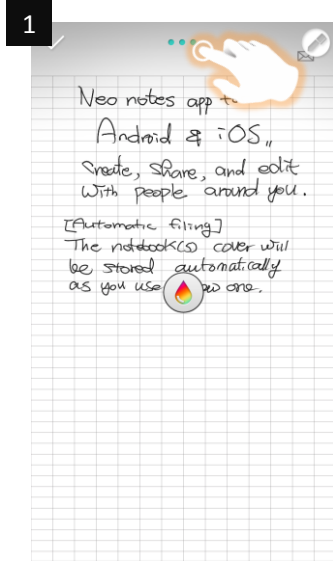 1
Neo notes app
Android & iOS,,
Create, Share, and edit
With people around you.
[Automatic filing]
The notebook(s) cover will
be stored automatically
as you use one.